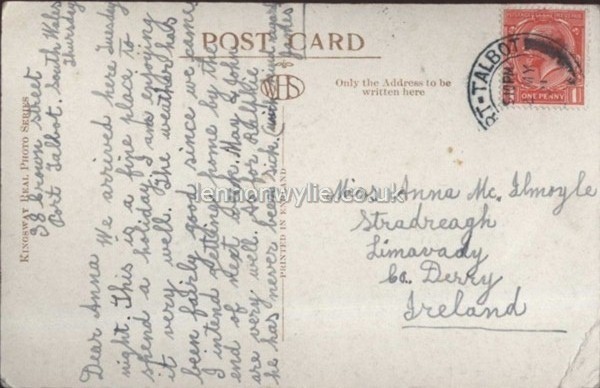 POST CARD
Only the Address to be
written here
KINGSWAY REAL PHOTO SERIES
PRINTED IN ENGLAND
PORT-TALBOT
ONE PENNY
1
lennonwylie.co.uk
38 Crown Street
Port Talbot. South Wales
Thursday
Dear Anna We arrived here Tuesday
night. This is a fine place to
spend a holiday, I am enjoying
it very well. The weather has
been fairly good since we came
I intend getting home by the
end of next week. May & John
are very well. As for
he has never been sick. With love
James
Miss Anna Mc. Ilmoyle
Stradreagh
Limavady
Co. Derry
Ireland